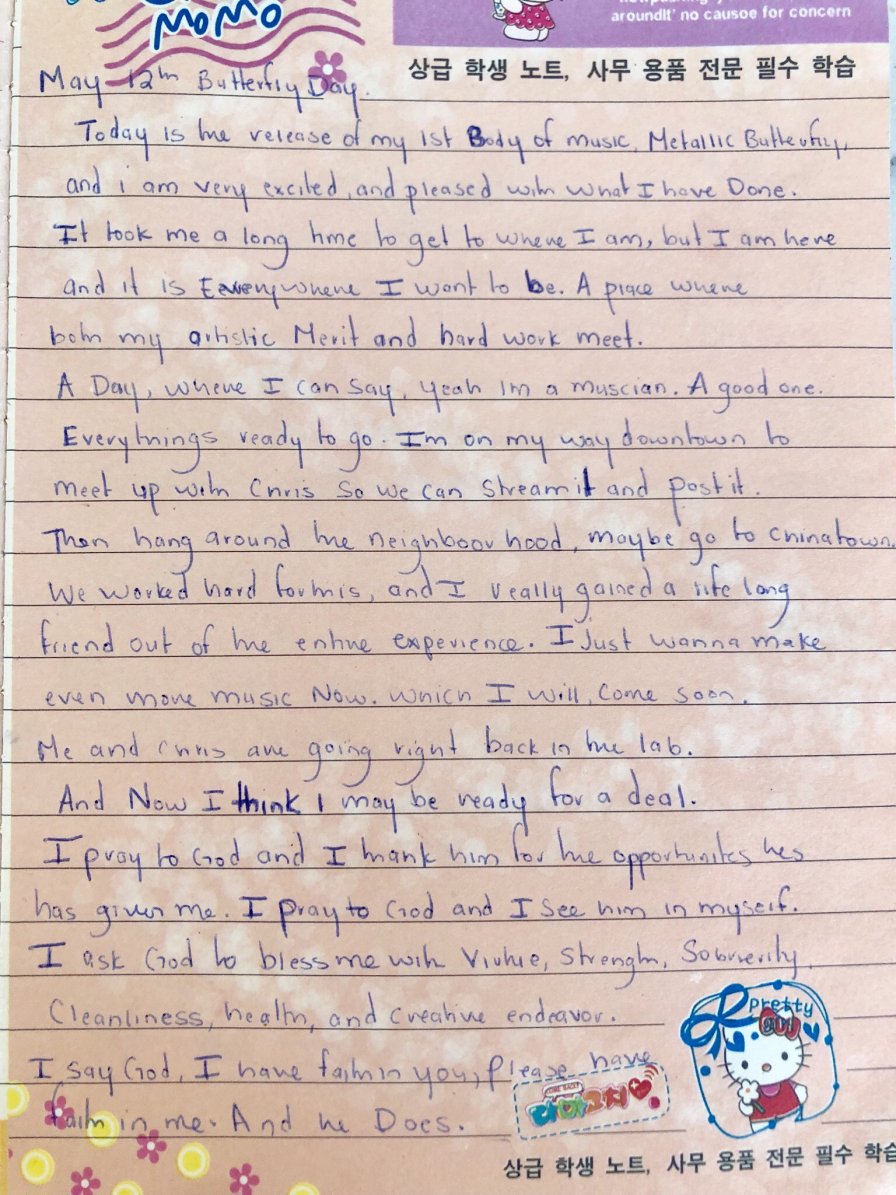 MOMO
aroundIt' no causoe for concern
상급 학생 노트, 사무 용품 전문 필수 학습
May 12th Butterfly Day.
Today is the release of my 1st Body of music, Metallic Butterfly,
and i am very excited, and pleased with what I have Done.
It took me a long time to get to where I am, but I am here
and it is Everywhere I want to be. A place where
both my artistic Merit and hard work meet.
A Day, where I can say, yeah Im a muscian. A good one.
Everythings ready to go. Im on my way downtown to
meet up with Chris so we can stream it and post it.
Then hang around the neighboorhood, maybe go to chinatown.
We worked hard for this, and I really gained a life long
friend out of the entire experience. I Just wanna make
even more music Now. which I will, come soon.
Me and Chris are going right back in the lab.
And Now I think I may be ready for a deal.
I pray to God and I thank him for the opportunites hes
has given me. I pray to God and I see him in myself.
I ask God to bless me with Virtue, Strength, Sobrierity,
Cleanliness, health, and creative endeavor.
I say God, I have faith in you, please have
faith in me. And he Does.
pretty
COME BACK!!
다마고치
상급 학생 노트, 사무 용품 전문 필수 학습